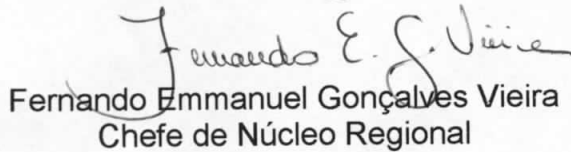 Fernando E. G. Vieira
Fernando Emmanuel Gonçalves Vieira
Chefe de Núcleo Regional